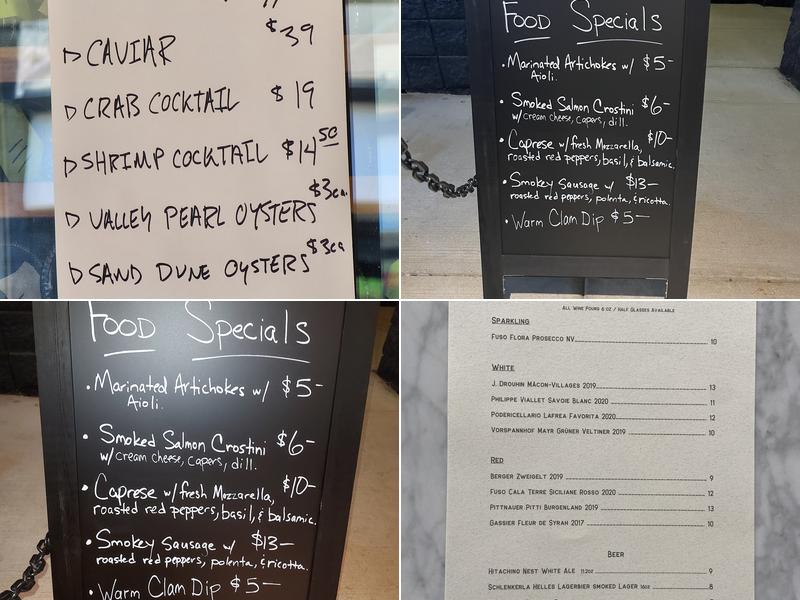 $39
▷ CAVIAR
▷ CRAB COCKTAIL $19
▷ SHRIMP COCKTAIL $14 50
▷ VALLEY PEARL OYSTERS $3ea.
▷ SAND DUNE OYSTERS $3ea
Food Specials
• Marinated Artichokes w/ $5-
Aioli.
• Smoked Salmon Crostini $6-
w/cream cheese, capers, dill.
• Caprese w/fresh Mozzarella, $10-
roasted red peppers, basil, & balsamic.
• Smokey Sausage w/ $13-
roasted red peppers, polenta, & ricotta.
• Warm Clam Dip $5-
Food Specials
• Marinated Artichokes w/ $5-
Aioli.
• Smoked Salmon Crostini $6-
w/cream cheese, capers, dill.
• Caprese w/fresh Mozzarella, $10-
roasted red peppers, basil, & balsamic.
• Smokey Sausage w/ $13-
roasted red peppers, polenta, & ricotta.
• Warm Clam Dip $5-
All Wine Pours 6 oz / Half Glasses Available
Sparkling
Fuso Flora Prosecco NV 10
White
J. Drouhin Mâcon-Villages 2019 13
Philippe Viallet Savoie Blanc 2020 11
Podericellario Lafrea Favorita 2020 12
Vorspannhof Mayr Grüner Veltiner 2019 10
Red
Berger Zweigelt 2019 9
Fuso Cala Terre Siciliane Rosso 2020 12
Pittnauer Pitti Burgenland 2019 13
Gassier Fleur de Syrah 2017 10
Beer
Hitachino Nest White Ale 11.2oz 9
Schlenkerla Helles Lagerbier Smoked Lager 16oz 8